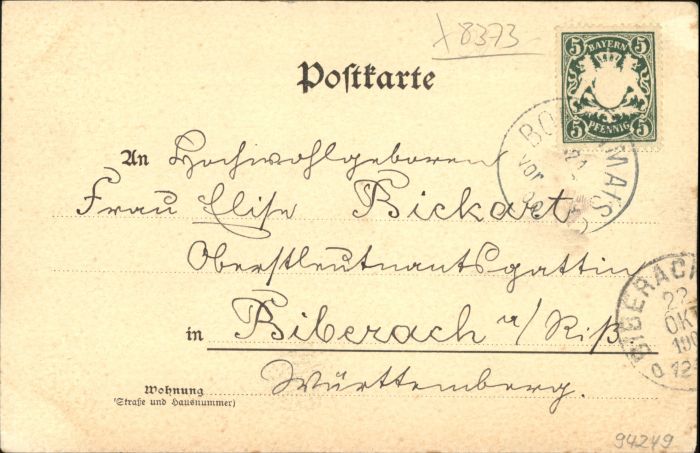 x 8373
Postkarte
5 BAYERN 5
5 PFENNIG 5
BO MAIS
21
vor
An Hochwohlgeboren
Frau Elise Bickart
Oberstleutnantsgattin
in Biberach a/Riß
Württemberg.
BIBERACH
22
OKT
190
12-
Wohnung
(Straße und Hausnummer)
94249